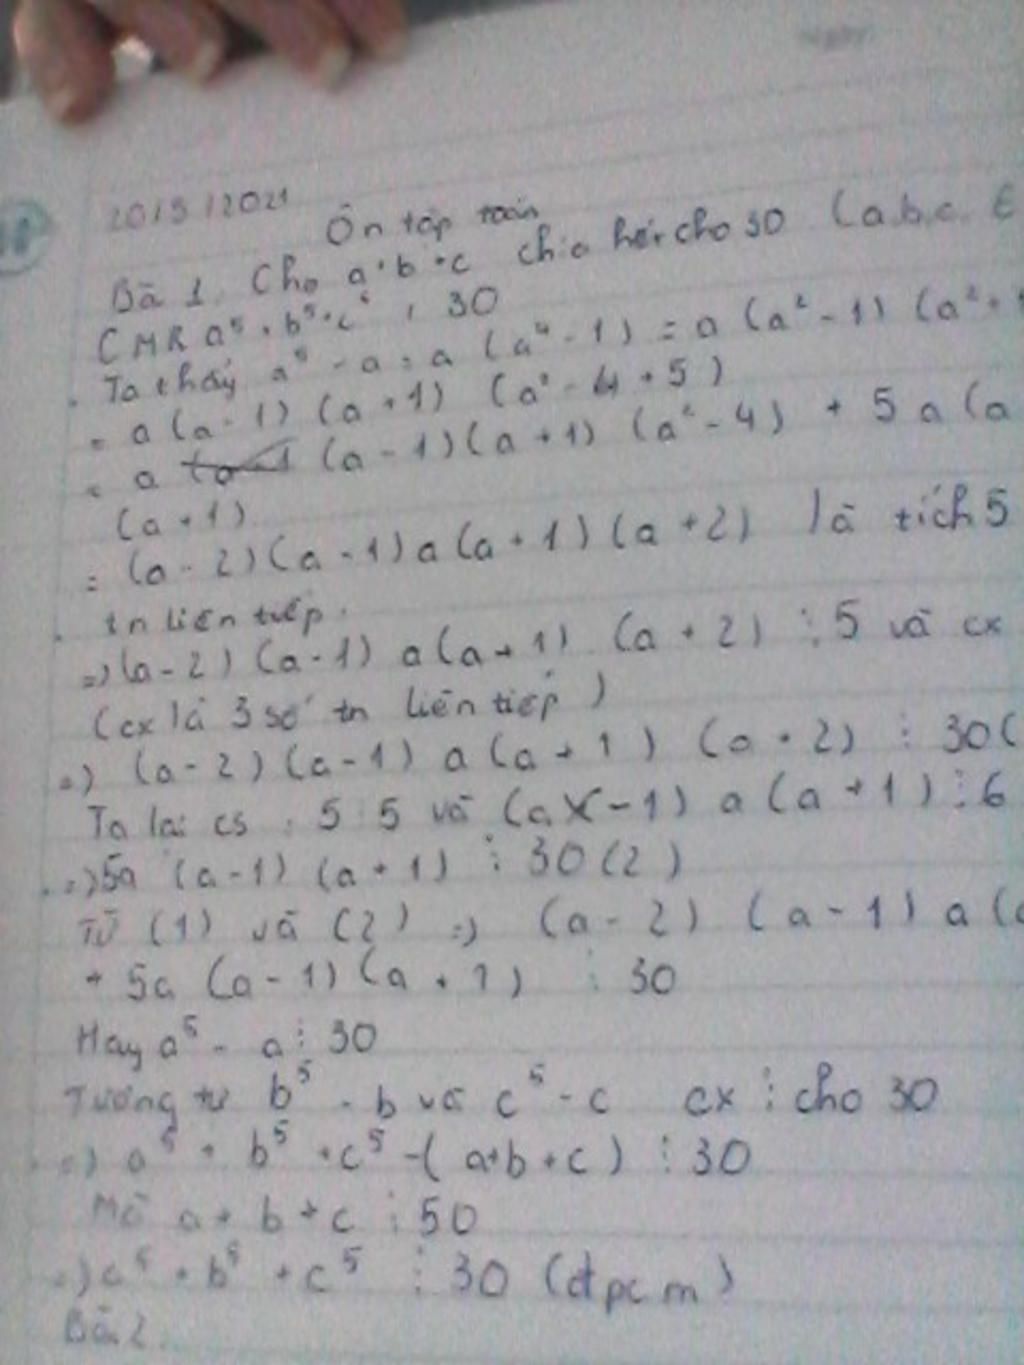 20/5/2021
Ôn tập toán
Bà 1. Cho a+b+c chia hết cho 30 (a,b,c €
CMR a⁵+b⁵+c⁵ ⋮ 30
Ta thấy a⁵ - a = a (a⁴ - 1) = a (a² - 1) (a² +
= a (a - 1) (a + 1) (a² - 4 + 5)
= a (a - 1)(a + 1) (a² - 4) + 5 a (a
(a + 1)
= (a - 2)(a - 1) a (a + 1) (a + 2) là tích 5
tn liên tiếp.
=> (a - 2) (a - 1) a (a + 1) (a + 2) ⋮ 5 và cx
(cx là 3 số tn liên tiếp)
=> (a - 2) (a - 1) a (a + 1) (a + 2) ⋮ 30 (
Ta lại có : 5 ⋮ 5 và (a - 1) a (a + 1) ⋮ 6
=> 5a (a - 1) (a + 1) ⋮ 30 (2)
Từ (1) và (2) => (a - 2) (a - 1) a (
+ 5a (a - 1) (a + 1) ⋮ 30
Hay a⁵ - a ⋮ 30
Tương tự b⁵ - b và c⁵ - c cx ⋮ cho 30
=> a⁵ + b⁵ + c⁵ - (a+b+c) ⋮ 30
Mà a + b + c ⋮ 50
=> a⁵ + b⁵ + c⁵ ⋮ 30 (đpcm)
Bà 2.